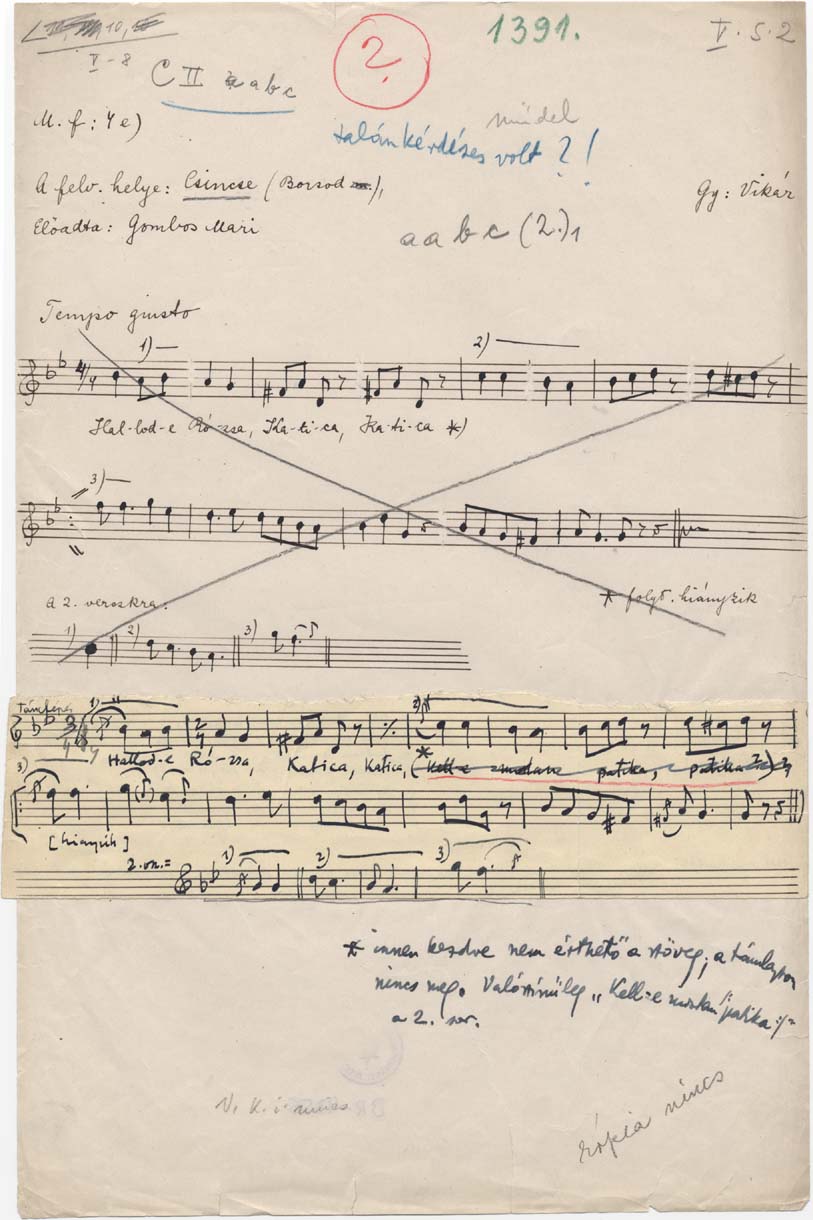 10,
V-8
C II a a b c
?
1391.
V. S. 2
M. f: 4 e)
talán kérdéses volt ?!
A felv. helye: Csincse (Borsod),
Gy: Vikár
Előadta: Gombos Mari
a a b c (2.)1
Tempo giusto
1) 2)
4/4
Hal-lod-e Ró-zsa, Ka-ti-ca, Ka-ti-ca *)
3)
a 2. verszkra:
* folyt. hiányzik
1) 2) 3)
Tánclépés 1) 2)
2/4
3) Hallod-e Ró-zsa, Katica, Katica, (* Kell-e patika, patika
[hiányzik]
2. vn.= 1) 2) 3)
* innen kezdve nem érthető a szöveg, a támlapon
nincs meg. Valószínűleg „Kell-e patika :/"
a 2. sor.
V. K. i. nincs
kópia nincs